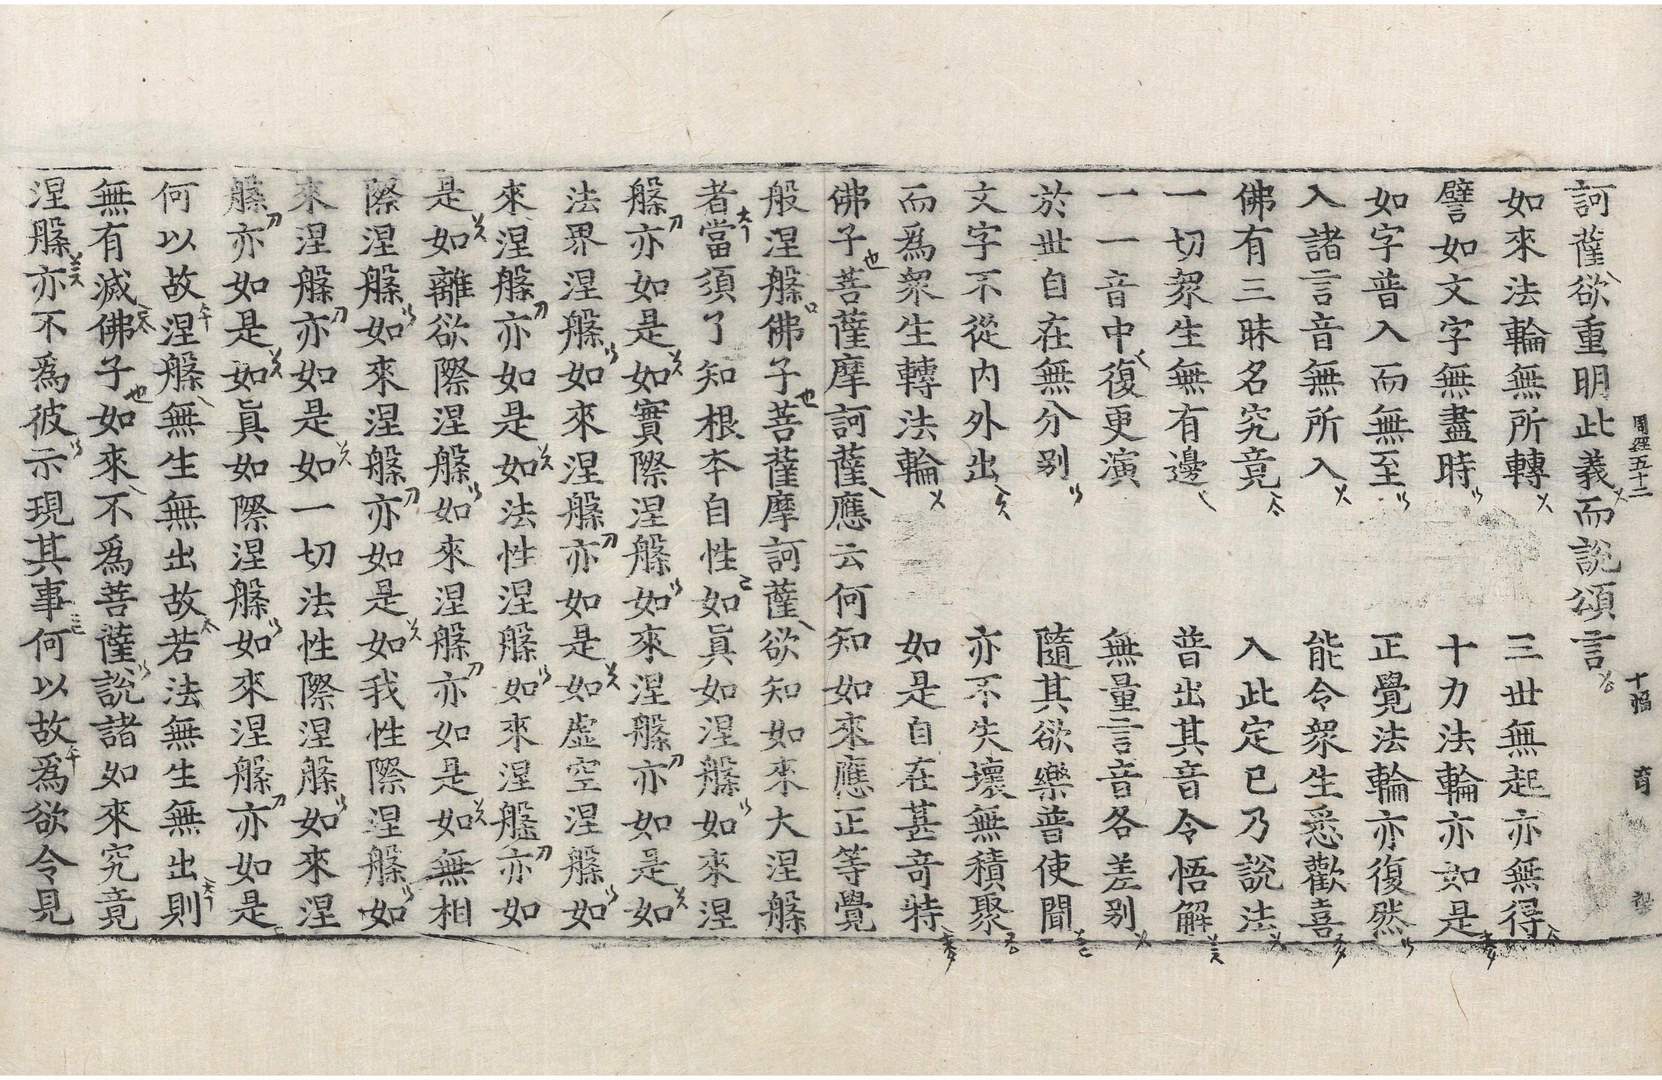 訶薩欲重明此義而說頌言
周經五十二 十幅 育
如來法輪無所轉 三世無起亦無得
譬如文字無盡時 十力法輪亦如是
如字普入而無至 正覺法輪亦復然
入諸言音無所入 能令衆生悉歡喜
佛有三昧名究竟 入此定已乃說法
一切衆生無有邊 普出其音令悟解
一一音中復更演 無量言音各差別
於世自在無分別 隨其欲樂普使聞
文字不從內外出 亦不失壞無積聚
而爲衆生轉法輪 如是自在甚奇特
佛子菩薩摩訶薩應云何知如來應正等覺
般涅槃佛子菩薩摩訶薩欲知如來大涅槃
者當須了知根本自性如眞如涅槃如來涅
槃亦如是如實際涅槃如來涅槃亦如是如
法界涅槃如來涅槃亦如是如虛空涅槃如
來涅槃亦如是如法性涅槃如來涅槃亦如
是如離欲際涅槃如來涅槃亦如是如無相
際涅槃如來涅槃亦如是如我性際涅槃如
來涅槃亦如是如一切法性際涅槃如來涅
槃亦如是如眞如際涅槃如來涅槃亦如是
何以故涅槃無生無出故若法無生無出則
無有滅佛子如來不爲菩薩說諸如來究竟
涅槃亦不爲彼示現其事何以故爲欲令見